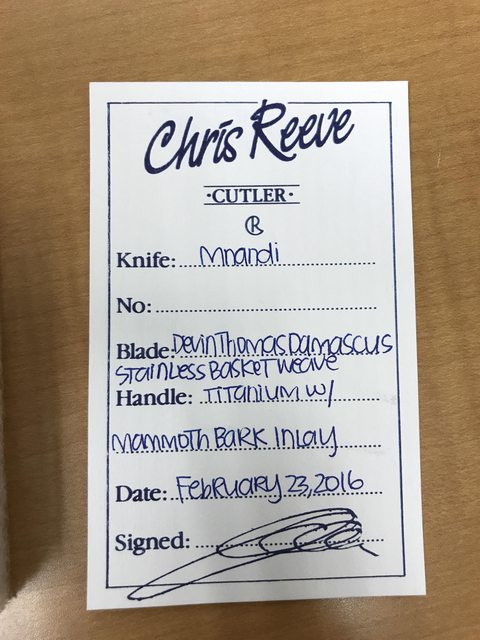 Chris Reeve
·CUTLER·
CR
Knife: Mnandi
No:
Blade: Devin Thomas Damascus
Stainless Basket Weave
Handle: Titanium w/
Mammoth Bark Inlay
Date: February 23, 2016
Signed: